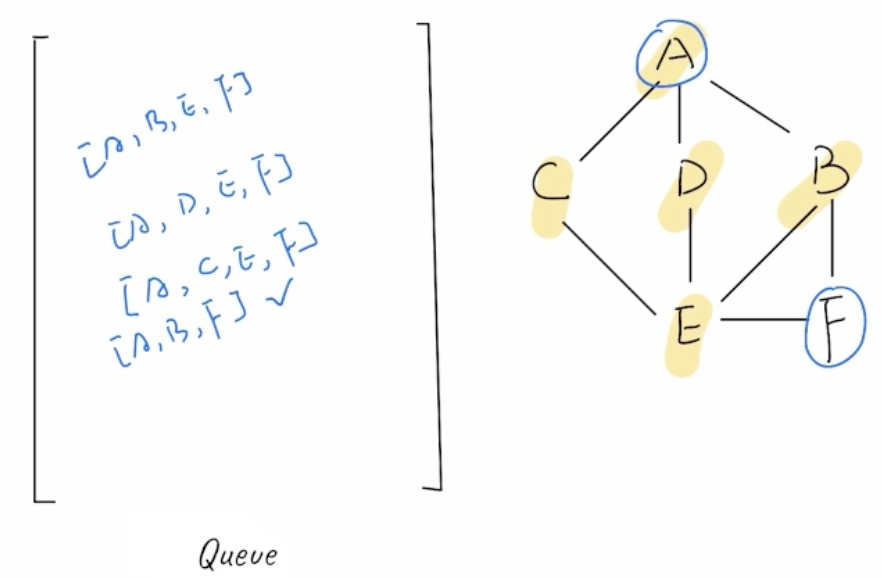 [A, B, E, F]
[A, D, E, F]
[A, C, E, F]
[A, B, F] ✓
Queue
A
C D B
E F